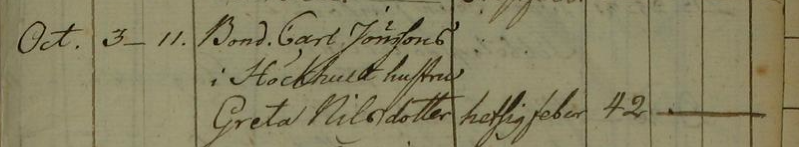 Oct. 3– 11. Bond. Carl Jönssons
i Höckhult hustru
Greta Nilsdotter hetsig feber 42